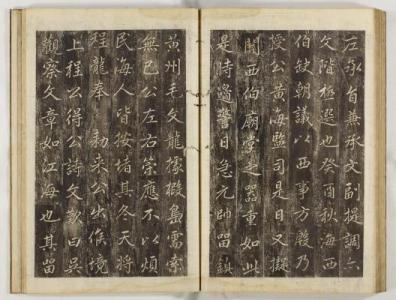 左承旨兼承文副提調亦
文階極選也癸酉秋海西
伯缺朝議以西事方殷乃
授公黃海監司是日又擬
關西伯廟堂之器重如此
是時邊警日急元帥留鎮
黃州毛文龍據椵島需索
無已公左右策應不以煩
民海人皆按堵其冬天將
程龍奉 勅來公出候境
上程公得公詩文歎曰吳
觀察文章如江海也其留